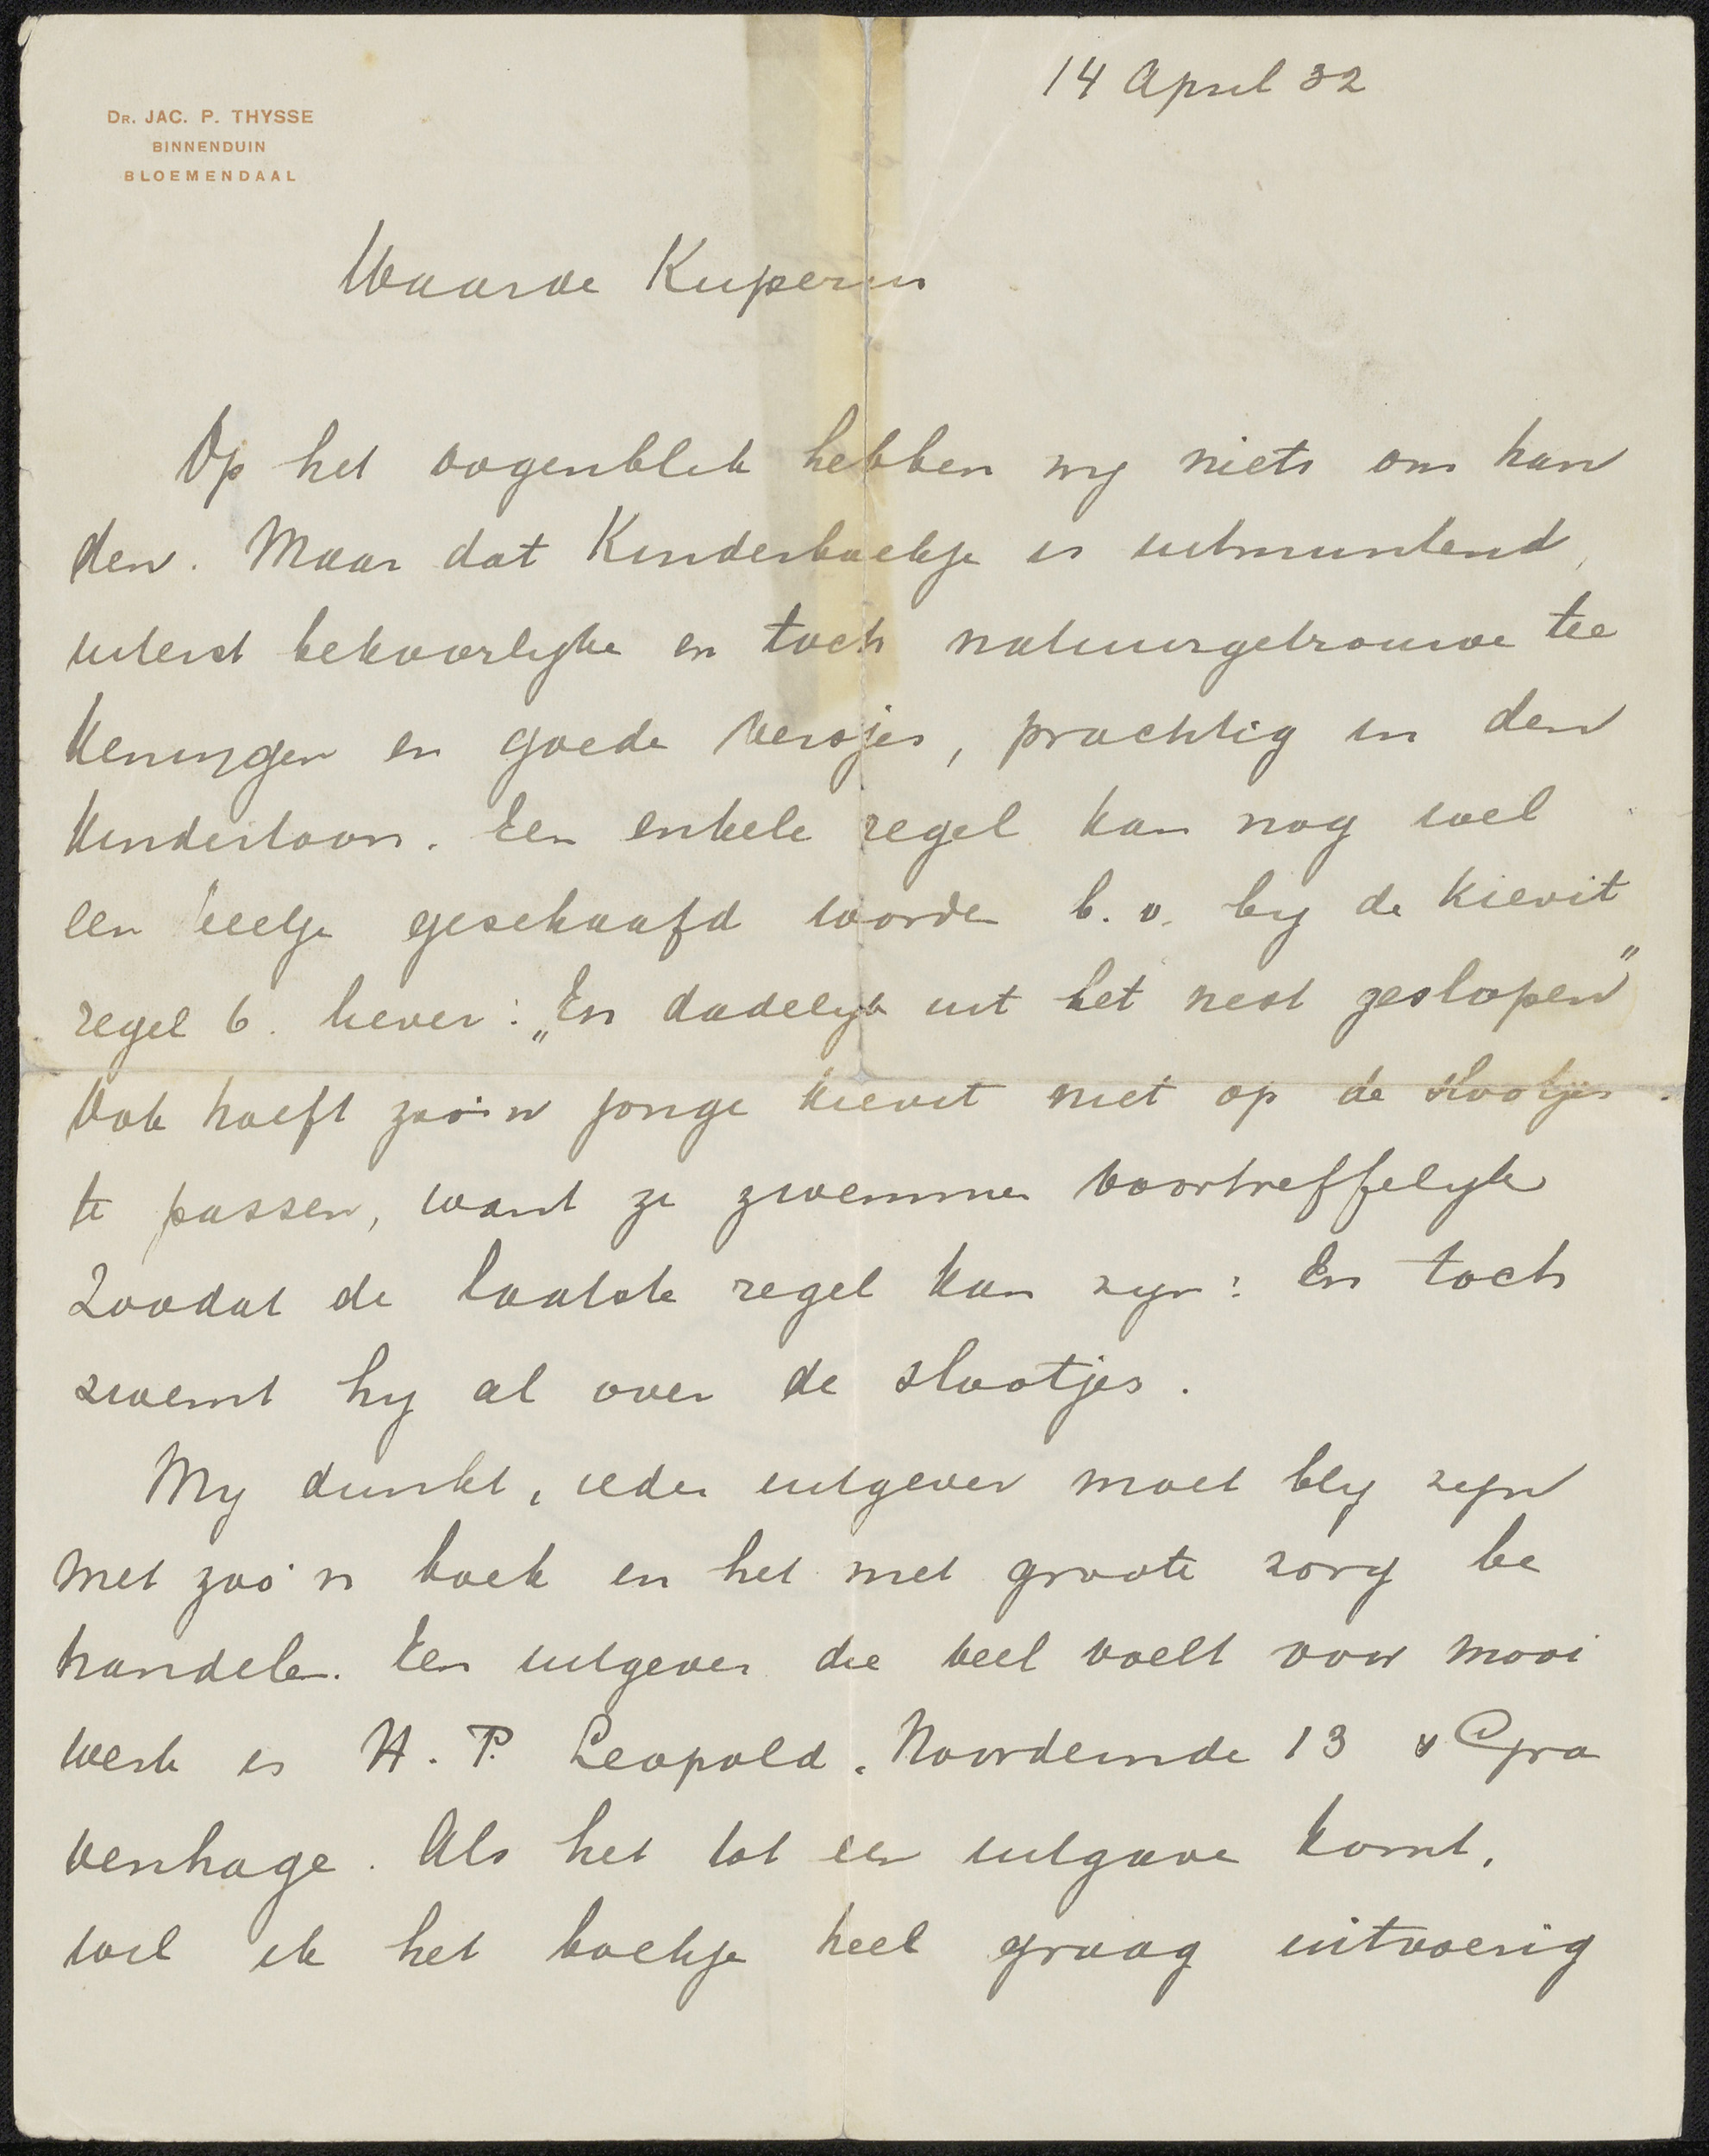 14 April 32
DR. JAC. P. THYSSE
BINNENDUIN
BLOEMENDAAL
Waarde Kuperus
Op het oogenblik hebben wy niets om han
den. Maar dat Kinderboekje is uitmuntend,
uiterst bekoorlyke en toch natuurgetrouwe tee
keningen en goede versjes, prachtig in den
kindertoon. Een enkele regel kan nog wel
een beetje geschaafd worden b.v. by de Kievit
regel 6. liever: „En dadelyk uit het nest geslopen”
Ook hoeft zoo'n jonge kievit niet op de slootjes
te passen, want ze zwemmen voortreffelyk
Zoodat de laatste regel kan zyn: En toch
zwemt hy al over de slootjes.
My dunkt, ieder uitgever moet bly zyn
met zoo'n boek en het met groote zorg be
handelen. Een uitgever die veel voelt voor mooi
werk is H. P. Leopold. Noordeinde 13 's Gra
venhage. Als het tot een uitgave komt,
wil ik het boekje heel graag uitvoerig